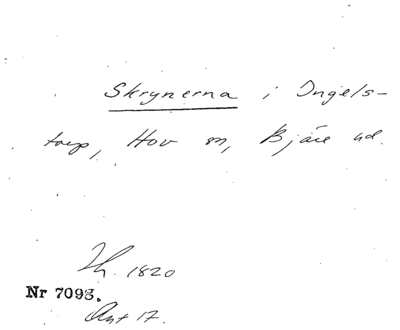 Skrynerna i Ingels-
torp, Hov sn, Bjäre hd.
Th. 1820
Nr 7093.
Ant 17.